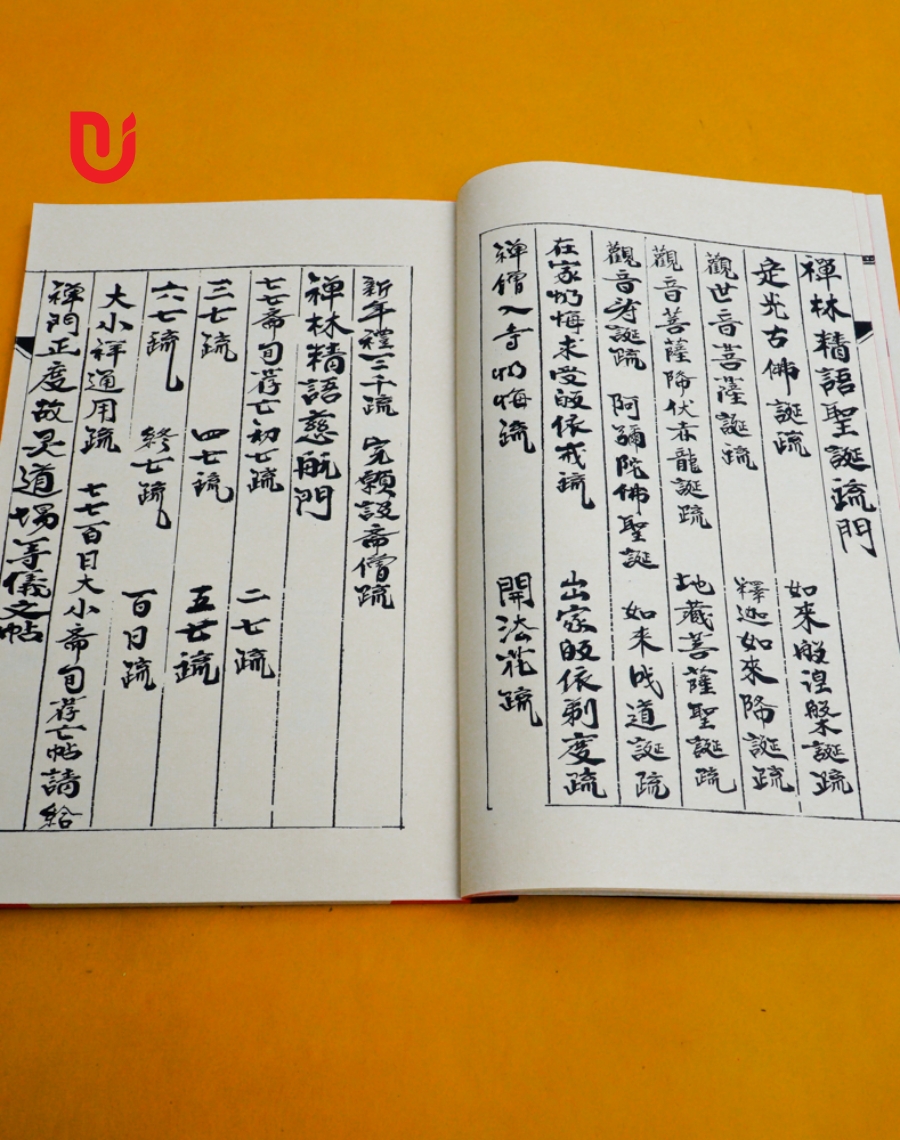 禪林精語聖誕疏門
如來般涅槃誕疏
定光古佛誕疏
釋迦如來降誕疏
觀世音菩薩誕疏
地藏菩薩聖誕疏
觀音菩薩降伏赤龍誕疏
如來成道誕疏
觀音誕疏 阿彌陀佛聖誕
在家忏悔求受皈依戒疏
出家皈依剃度疏
禅僧入寺忏悔疏
開法花疏
新年禮三千疏 完願設斋僧疏
禅林精語慈航門
七七斋旬荐亡初七疏
二七疏
三七疏 四七疏 五七疏
六七疏 終七疏 百日疏
大小祥通用疏 七七百日大小斋旬荐亡帖請給
禅門正度故灵道場等儀文帖